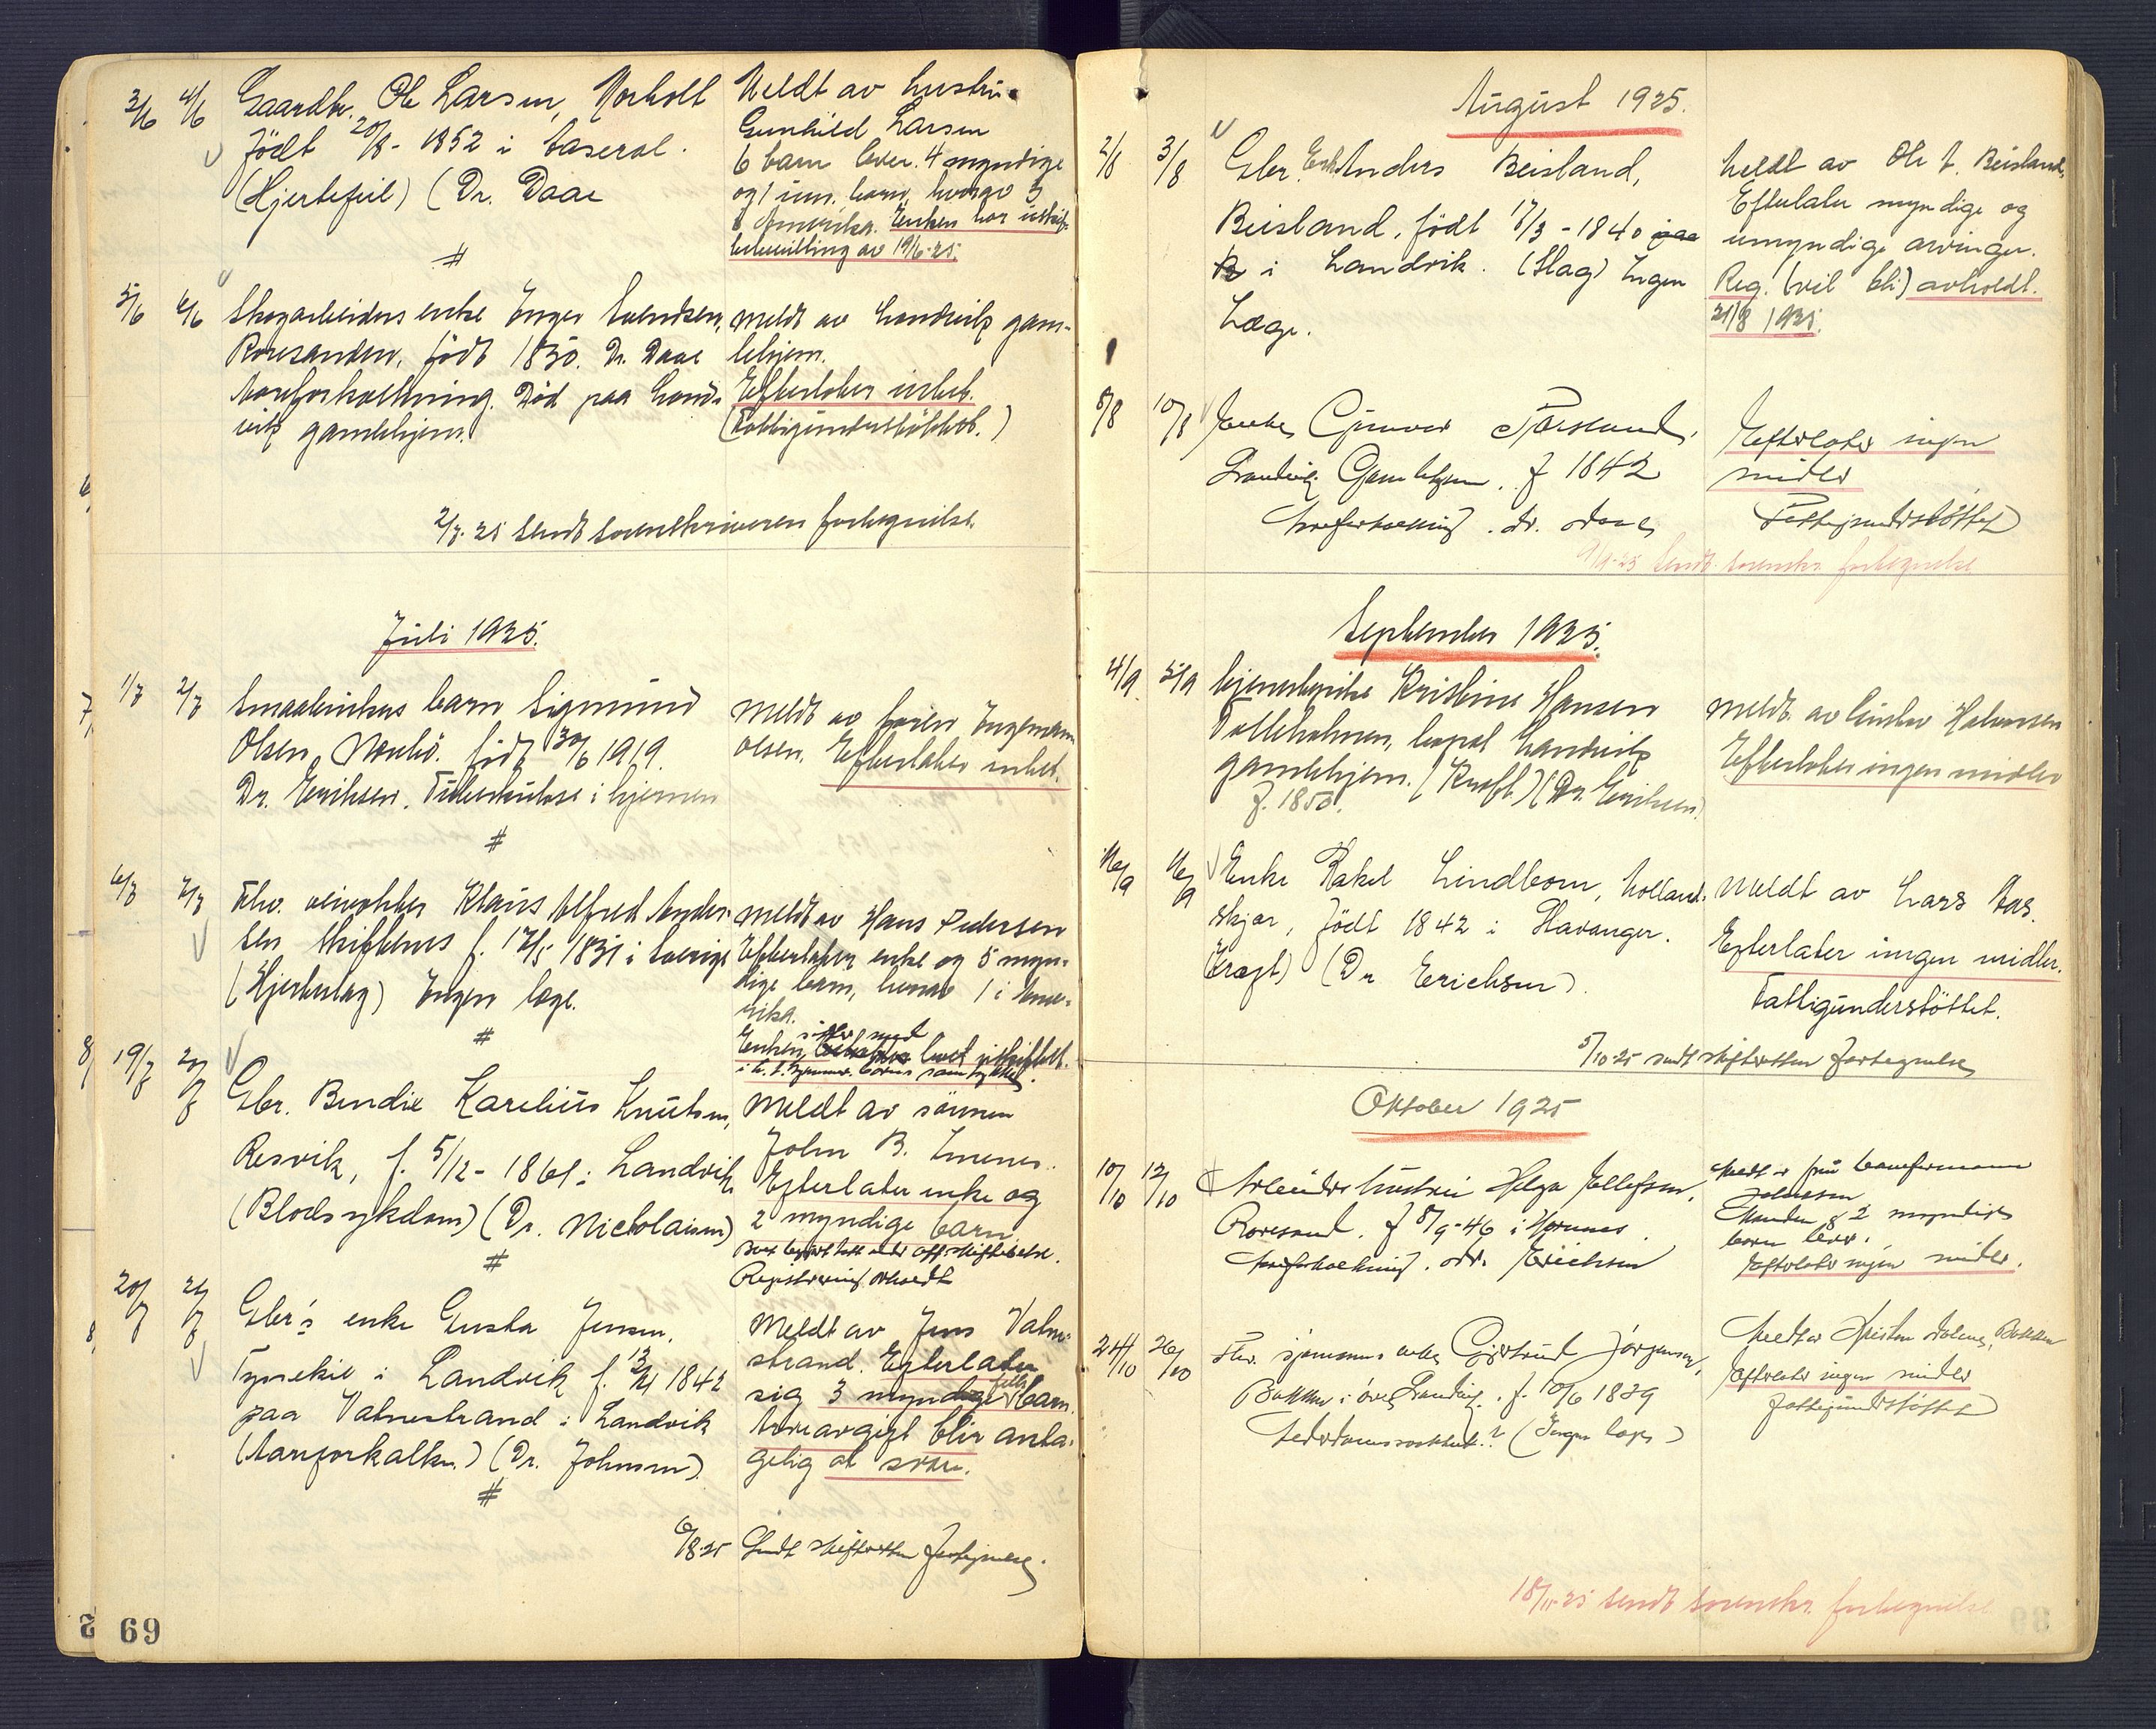 3/6 4/6 Gaardbr. Ole Larsen, Morholt
Født 20/8 - 1852 i Åaseral.
(Hjertefeil) (Dr. Daae
Meldt av hustru
Gunhild Larsen
6 barn lever. 4 myndige
og 1 um. barn, hvorav 3
i Amerika. Enken har uskifte-
bevilling av 19/6-25.
#
5/6 6/6 Skogarbeiders enke Inger Svendsen,
Roresanden, født 1830. Dr. Daae
Aareforkalkning. Død paa Land-
viks gamlehjem.
Meldt av Landviks gam-
lehjem.
Efterlater intet.
(Fattigunderstøttet.)
2/7. 25 sendt sorenskriveren fortegnelse.
Juli 1925.
1/7 2/7 Smaabrukers barn Sigmund
Olsen, født 30/6 1919.
Dr. Erichsen. Tuberkulose i hjernen
Meldt av faren Ingemann
Olsen. Efterlater intet.
#
6/7 7/7 Fhv. veivokter Klaus Alfred Ander-
sen f. 12/5 1831 i Sverige
(Hjerteslag) Ingen læge.
Meldt av Hans Pedersen
Efterlater enke og 5 myn-
dige barn, hvorav 1 i Ame-
rika.
sitter med
Enken boet uskiftet.
i h. t. barns samtykke.
#
19/7 20/7 Gbr. Bendix Karelius Knutsen,
Resvik, f. 5/12 - 1861 i Landvik
(Blodsykdom) (Dr. Nicolaisen)
Meldt av sønnen
John B.
Efterlater enke og
2 myndige barn
Registrering avholdt
#
20/7 21/7 Gbr's enke Gusta Jensen,
i Landvik f. 1842
paa Vatnestrand i Landvik
(Aareforkalkn.) (Dr. Johnsen)
Meldt av Jens Vatne-
strand. Efterlater
sig 3 myndige barn.
Arveavgift blir anta-
gelig at svare.
#
6/8.25 Sendt skifteretten Fortegnelse.
69
August 1925.
2/8 3/8 Gbr. Anders Beisland,
Beisland, født 17/3 - 1840
i Landvik. (Slag) Ingen
Læge.
Meldt av Ole A. Beisland,
Efterlater myndige og
umyndige arvinger.
Reg. (vil bli) avholdt.
21/8 1925.
8/8 10/8 Enke Gunvor
Landvik Gamlehjem. f 1842
Aareforkalkning. dr. Daae
Efterlater ingen
midler
Fattigunderstøttet
1/9-25 sendt sorenskr. fortegnelse
September 1925.
4/9 5/9 Tjenestepike Kristine Hansen
Tolleholmen, bopæl Landviks
gamlehjem. (Kræft) (Dr. Erichsen)
f. 1850.
Meldt av Halvorsen
Efterlater ingen midler
16/9 16/9 Enke Rakel Lindbom, Holland-
skjær, født 1842 i Stavanger.
(Kræft) (Dr Erichsen).
Meldt av Lars Aas.
Efterlater ingen midler.
Fattigunderstøttet.
5/10 25 sendt skifteretten Fortegnelse
Oktober 1925
10/10 12/10 Arbeiders hustru Helga Ellefsen,
Roresand. f 8/9-46 i Hornnes.
Aareforkalkning. dr. Erichsen
Meldt av fru
Manden & 2 myndige
barn lever.
Efterlater ingen midler.
24/10 26/10 Fhv. sjømanns enke Gjertrud Jørgensen,
Bakken i øvre Landvik. f. 10/6 1839
Alderdomssvakhet? (Ingen læge)
Meldt av Bakken
Efterlater ingen midler
Fattigunderstøttet
18/11-25 sendt sorenskr. fortegnelse